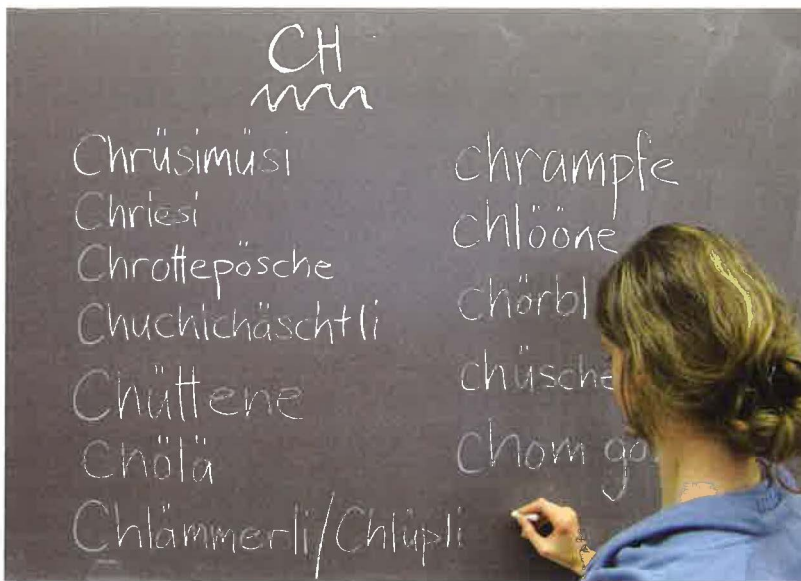 CH
Chrüsimüsi
Chriesi
Chrottepösche
Chuchichäschtli
Chüttene
Chölä
Chlämmerli/Chlüpli
chrampfe
chlööne
chörbl
chüsche
chom go